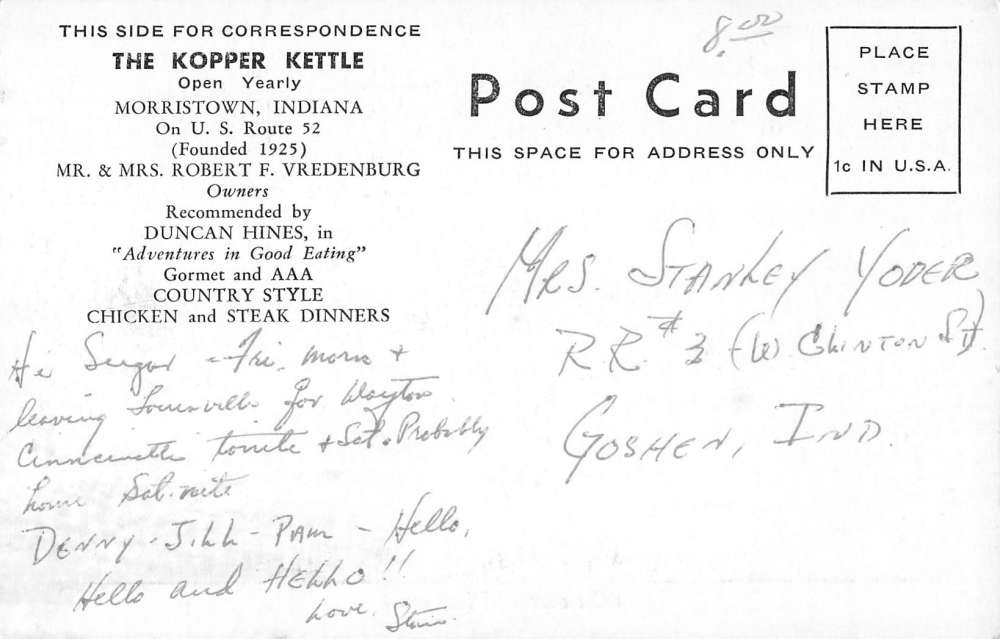 THIS SIDE FOR CORRESPONDENCE
THE KOPPER KETTLE
Open Yearly
MORRISTOWN, INDIANA
On U. S. Route 52
(Founded 1925)
MR. & MRS. ROBERT F. VREDENBURG
Owners
Recommended by
DUNCAN HINES, in
"Adventures in Good Eating"
Gormet and AAA
COUNTRY STYLE
CHICKEN and STEAK DINNERS
Hi Sugar - Fri. morn +
leaving for
tonite + Sat. Probably
home Sat. nite
DENNY - JILL - PAM - Hello,
Hello and HELLO!!
Love,
8.00
Post Card
THIS SPACE FOR ADDRESS ONLY
PLACE
STAMP
HERE
1c IN U.S.A.
MRS. STANLEY YODER
R.R. # 3 (W. CLINTON St)
GOSHEN, IND.